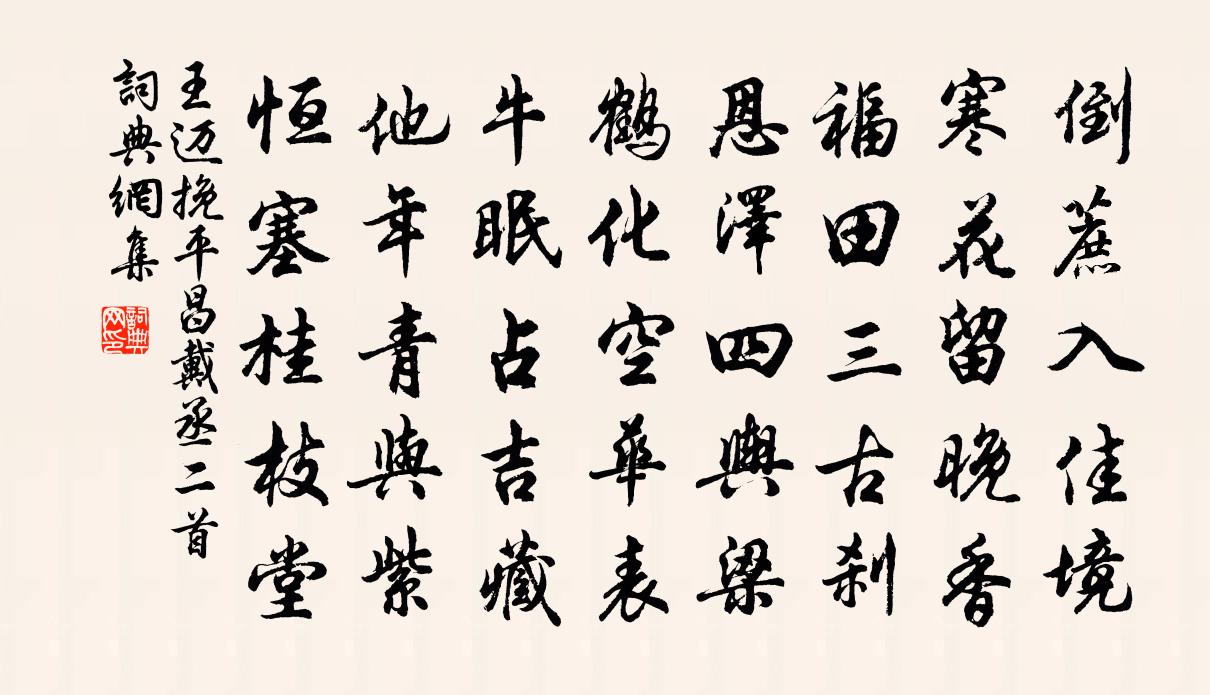 倒蔗入佳境
寒花留晚香
福田三古刹
恩澤四輿梁
鶴化空華表
牛眠占吉藏
他年青與紫
恒塞桂枝堂
王迈挽平昌戴丞二首
詞典網集
詞典网印